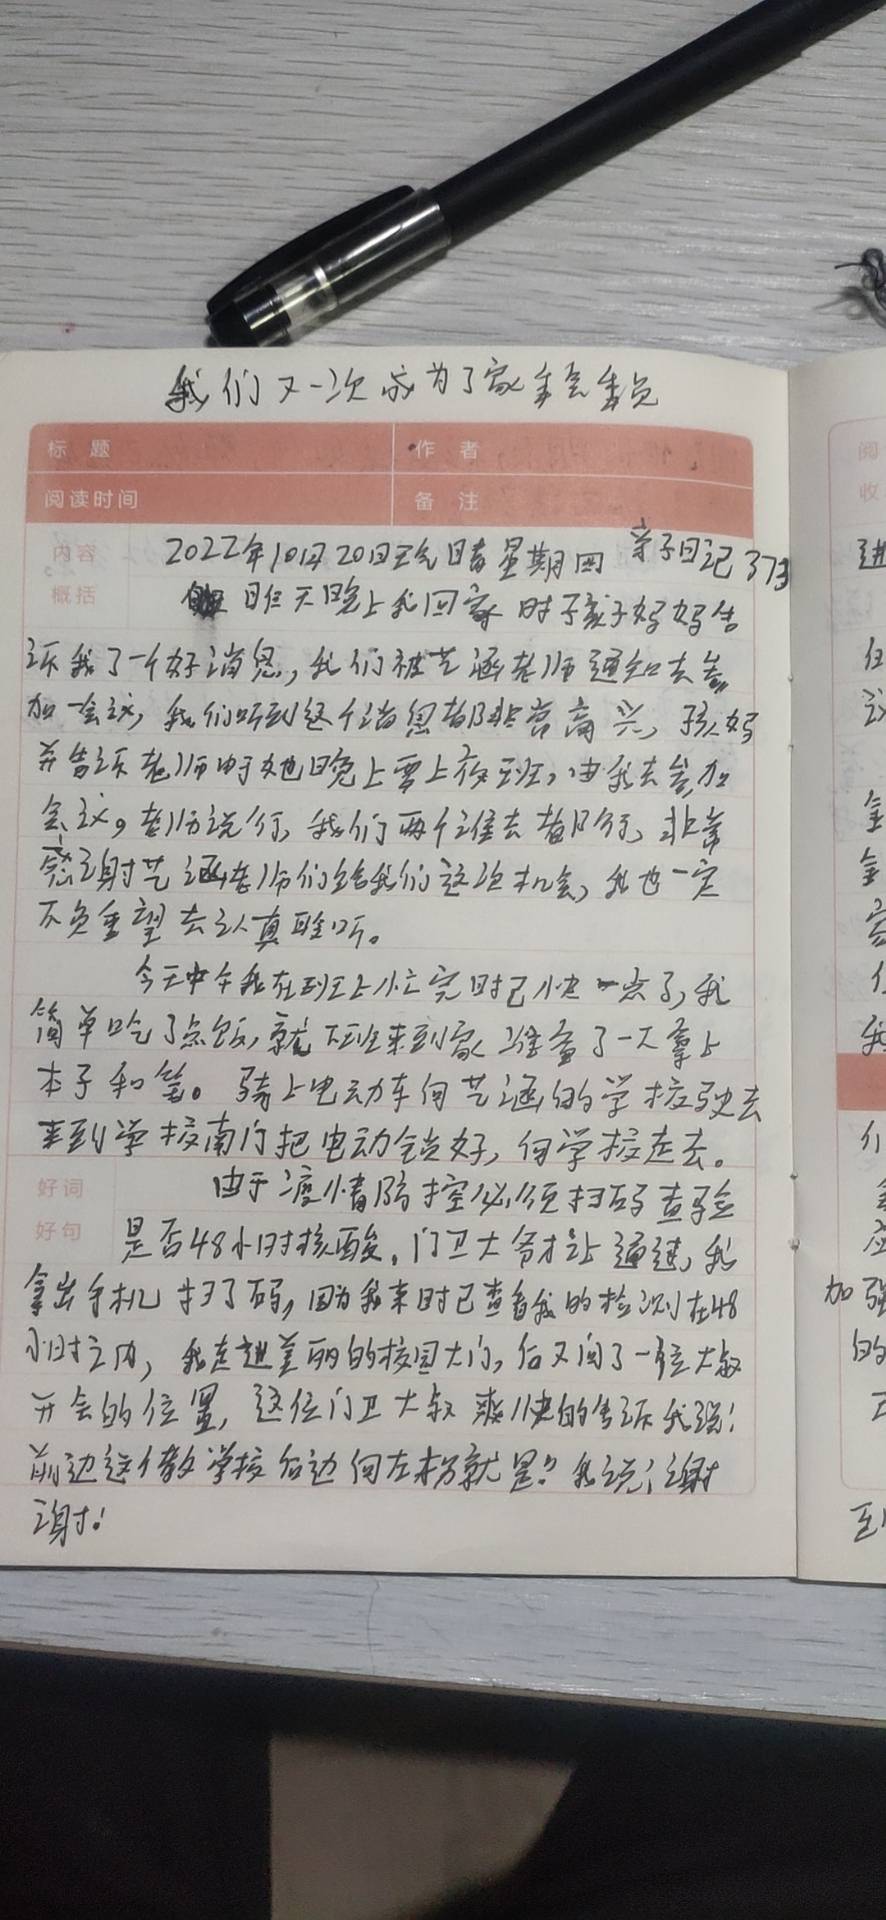 我们又一次成为了家委会委员
标 题
作 者
阅读时间
备 注
内容
概括
2022年10月20日天气晴星期四 亲子日记373
昨天晚上我回家时孩子妈妈告
诉我了一个好消息，我们被艺涵老师通知去参
加一会议，我们听到这个消息都非常高兴，孩妈
并告诉老师由于她晚上要上夜班，由我去参加
会议。老师说行，我们两个谁去都行，非常
感谢艺涵老师们给我们这次机会，我也一定
不负重望去认真聆听。
今天中午我在班上忙完时已快一点了，我
简单吃了点饭，就下班来到家准备了一下拿上
本子和笔。骑上电动车向艺涵的学校驶去
来到学校南门把电动锁好，向学校走去。
好词
好句
由于疫情防控必须扫码查验
是否48小时核酸，门卫大爷才让通过，我
拿出手机扫了码，因为我来时已查看我的检测在48
小时之内，我走进美丽的校园大门，后又问了一位大叔
开会的位置，这位门卫大叔爽快的告诉我说：
前边这个教学校后边向左拐就是？我说：谢
谢！
阅
收
进
任
金
家
我
加强
的